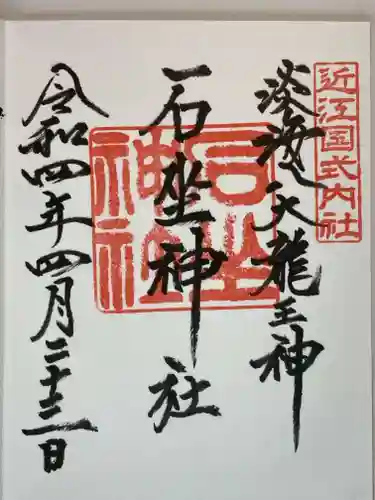 近江国式内社
淡海之天龍王神
石坐神社
石坐神社
令和四年四月二十三日